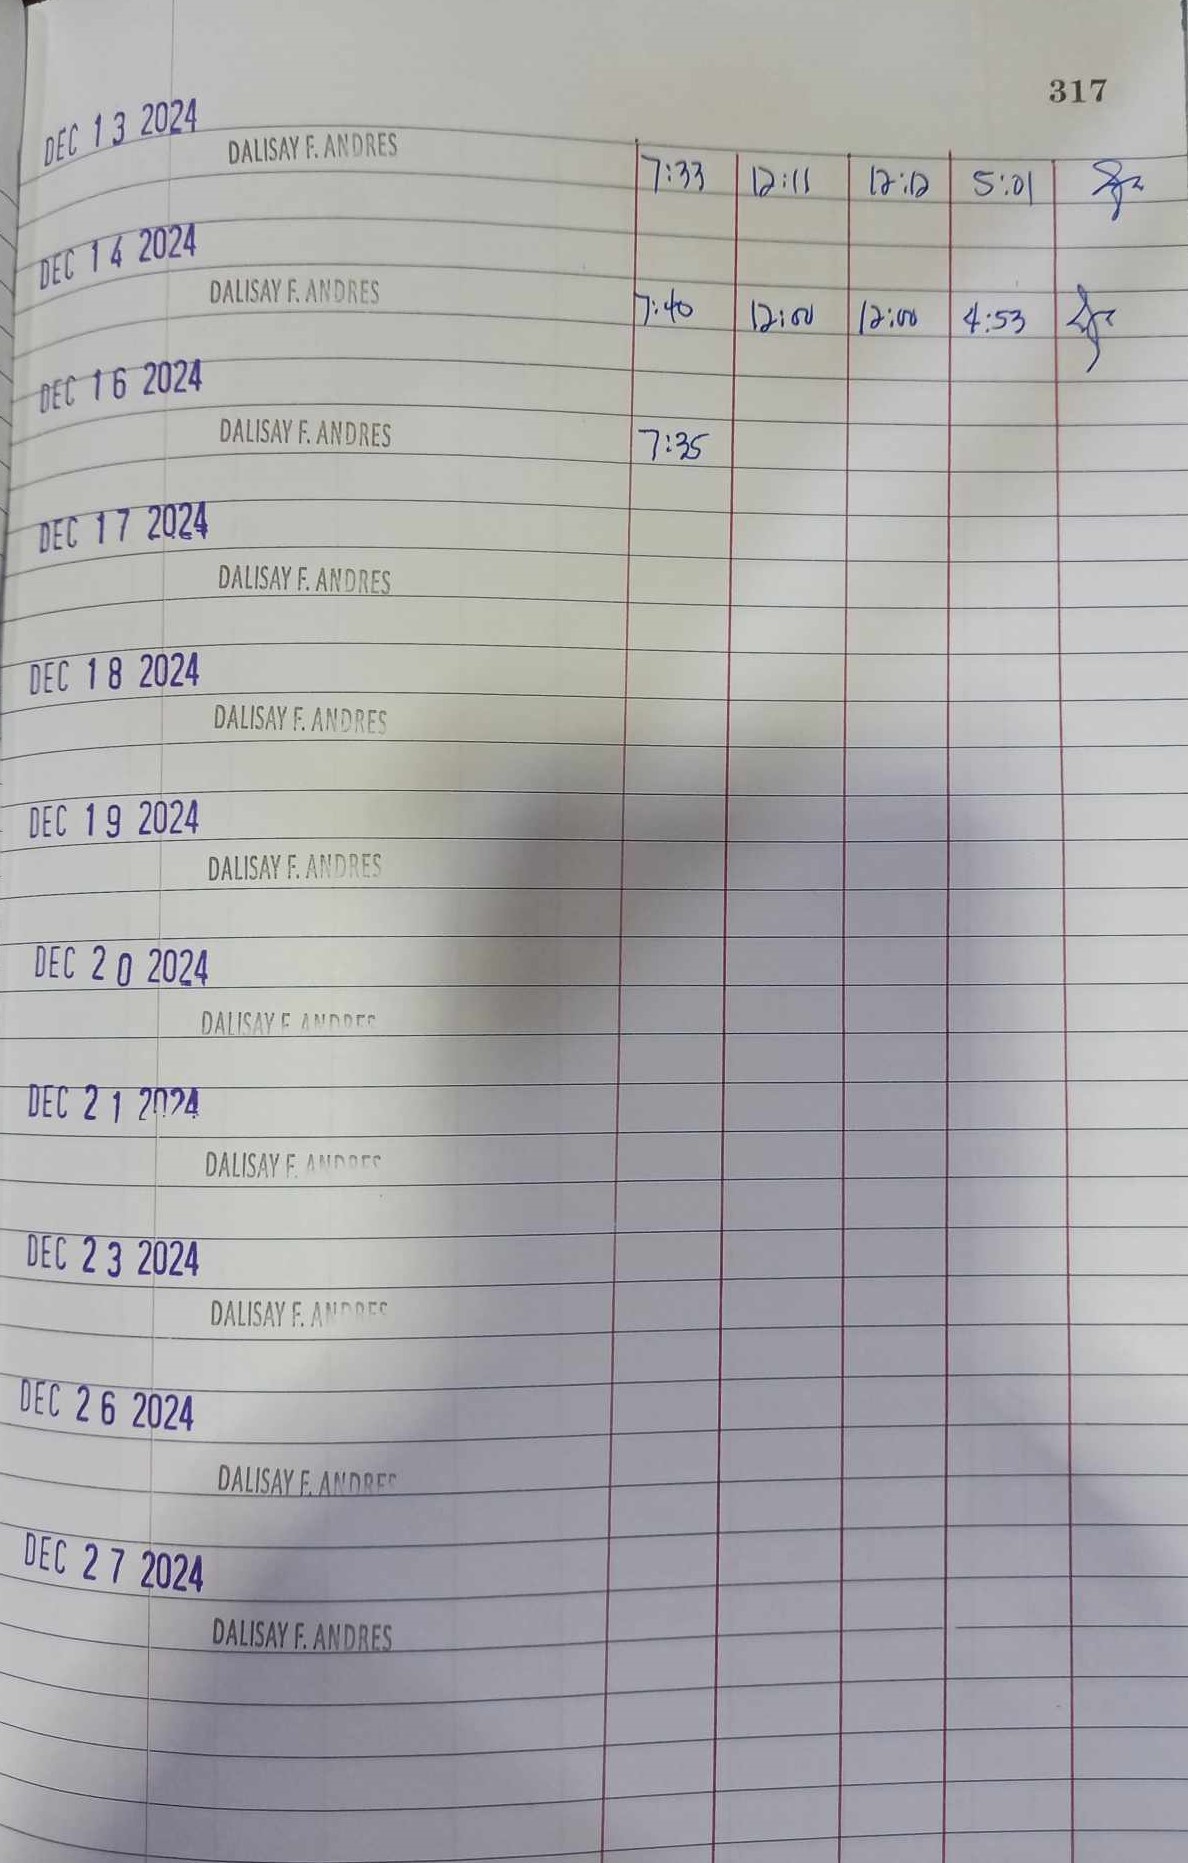 317
DEC 13 2024
DALISAY F. ANDRES
7:33 12:11 12:12 5:01
DEC 14 2024
DALISAY F. ANDRES
7:40 12:00 12:00 4:53
DEC 16 2024
DALISAY F. ANDRES
7:35
DEC 17 2024
DALISAY F. ANDRES
DEC 18 2024
DALISAY F. ANDRES
DEC 19 2024
DALISAY F. ANDRES
DEC 20 2024
DALISAY F. ANDRES
DEC 21 2024
DALISAY F. ANDRES
DEC 23 2024
DALISAY F. ANDRES
DEC 26 2024
DALISAY F. ANDRES
DEC 27 2024
DALISAY F. ANDRES